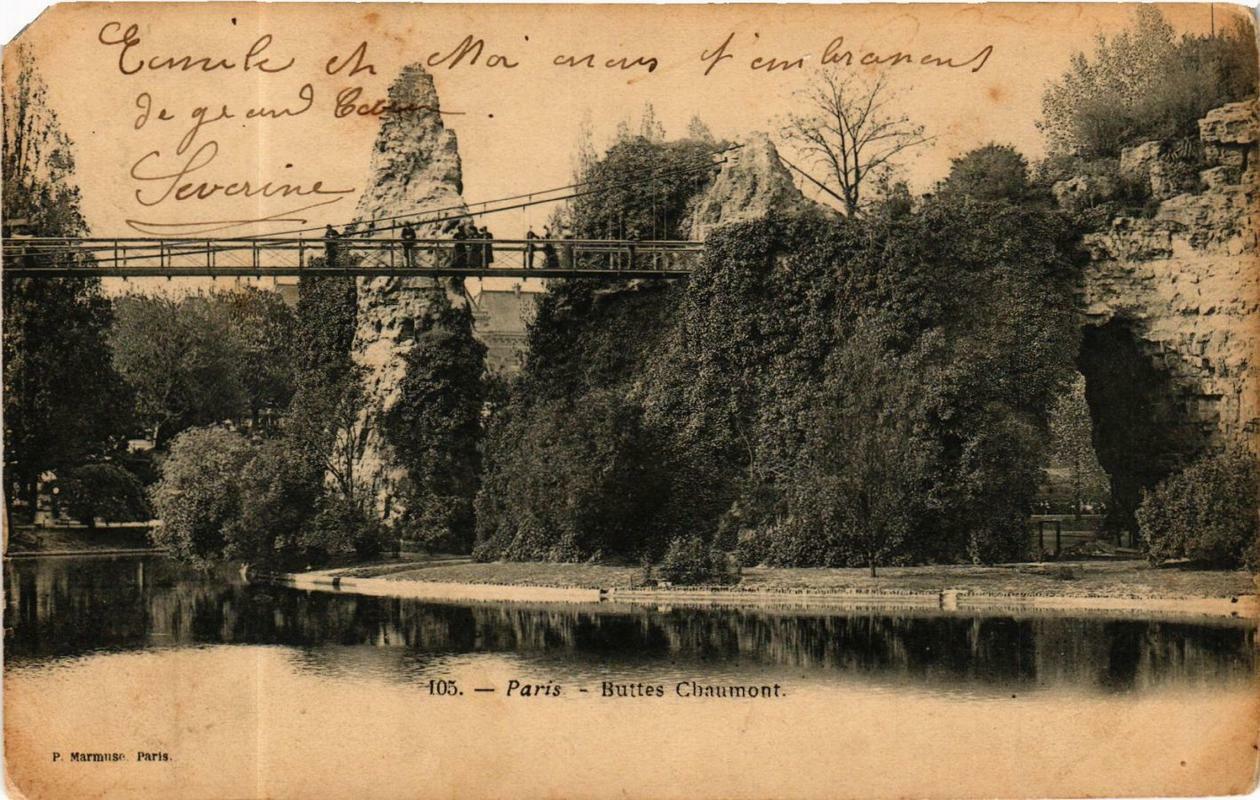 Emile et Moi nous t'embrassons
de grand Cœur
Severine
105. — Paris - Buttes Chaumont.
P. Marmuse. Paris.